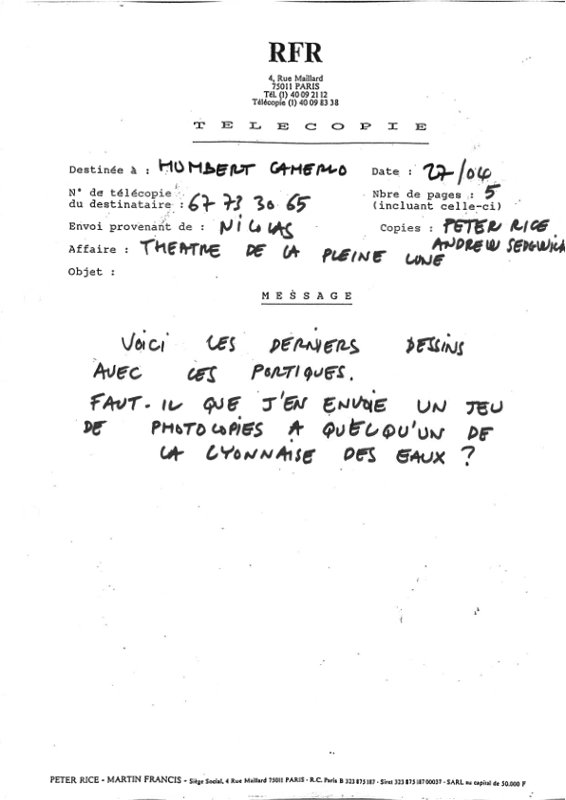 RFR
4, Rue Maillard
75011 PARIS
Tél. (1) 40 09 21 12
Télécopie (1) 40 09 83 38
TELECOPIE
Destinée à : HUMBERT CAMERLO Date : 27/04
N° de télécopie du destinataire : 67 73 30 65 Nbre de pages : 5 (incluant celle-ci)
Envoi provenant de : NICOLAS Copies : PETER RICE
ANDREW SEDGWICK
Affaire : THEATRE DE LA PLEINE LUNE
Objet :
MESSAGE
VOICI LES DERNIERS DESSINS
AVEC LES PORTIQUES.
FAUT-IL QUE J'EN ENVOIE UN JEU
DE PHOTOCOPIES A QUELQU'UN DE
LA LYONNAISE DES EAUX ?
PETER RICE - MARTIN FRANCIS - Siège Social, 4 Rue Maillard 75011 PARIS - R.C. Paris B 323 875 187 - Siret 323 875 187 00057 - SARL au capital de 50.000 F